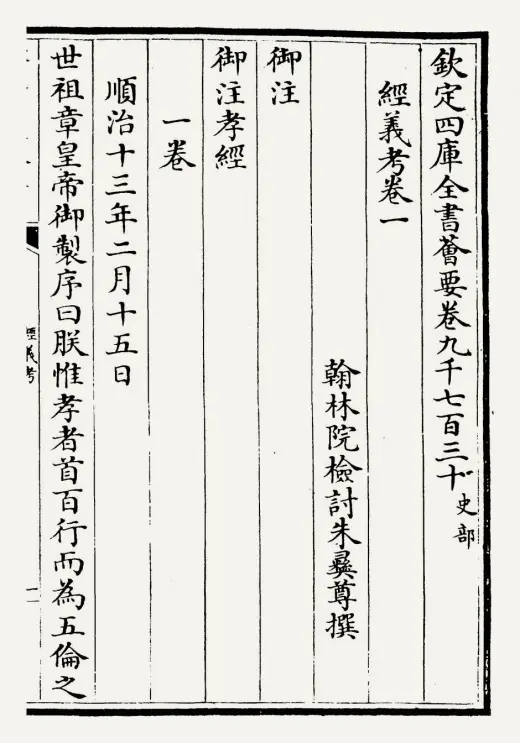 欽定四庫全書薈要卷九千七百三十 史部
經義考卷一
翰林院檢討朱彝尊撰
御注
御注孝經
一卷
順治十三年二月十五日
世祖章皇帝御製序曰朕惟孝者首百行而為五倫之
經義考
一